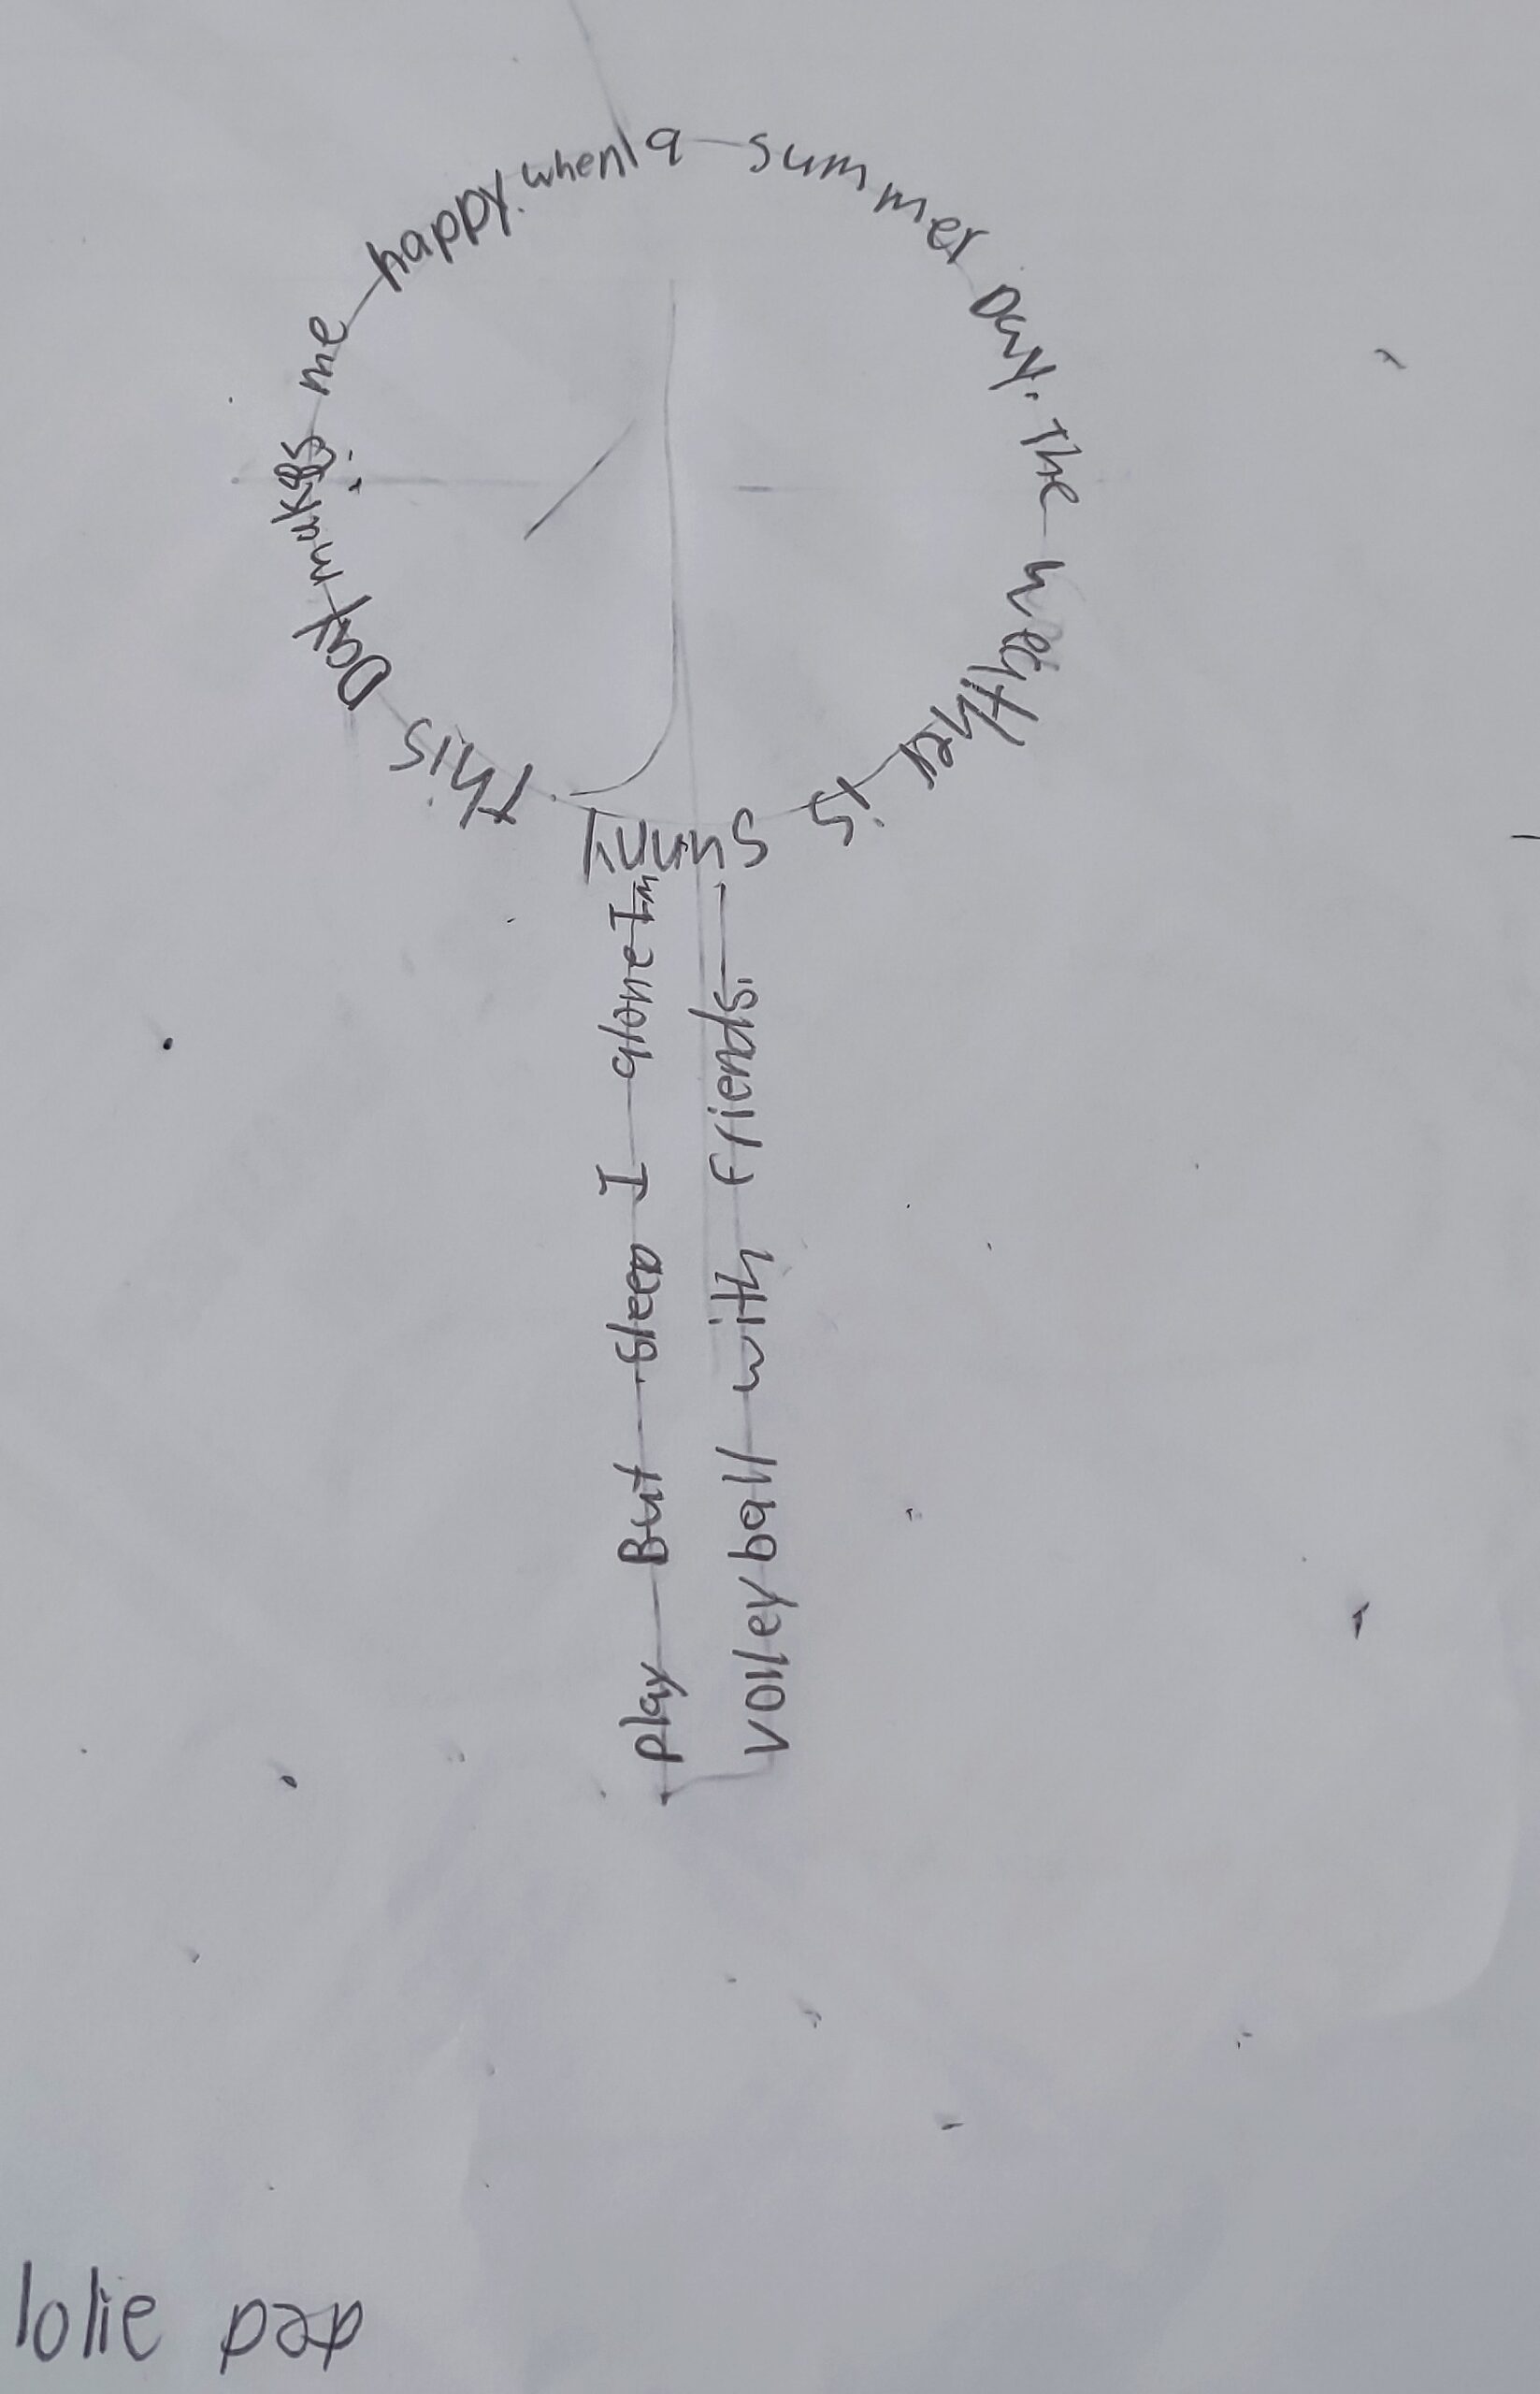 a summer Day. The weather is sunny this Day makes me happy. when
Im alone I But play
volleyball with friends.
lolie pop